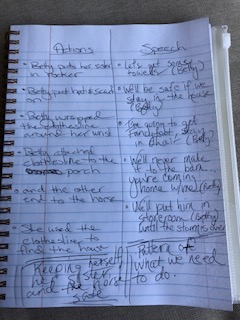 Actions
• Betty puts her sister
in rocker
• Betty put hat & scarf
on
• Betty wrapped
the clothesline
around her wrist
• Betty attached
clothesline to the
porch
• and the other
end to the horse
• She used the
clothesline to
find the house
Keeping herself,
her sister,
and the horse
safe
Speech
• Let's get some
towels (Betty)
• We'll be safe if we
stay in the house
(Betty)
• I'm going to get
in chair (Betty)
• We'll never make
it to the barn...
you're coming
home w/me (Betty)
• We'll put him in
storeroom (Betty)
until the storm is over
Pattern of
what we need
to do.